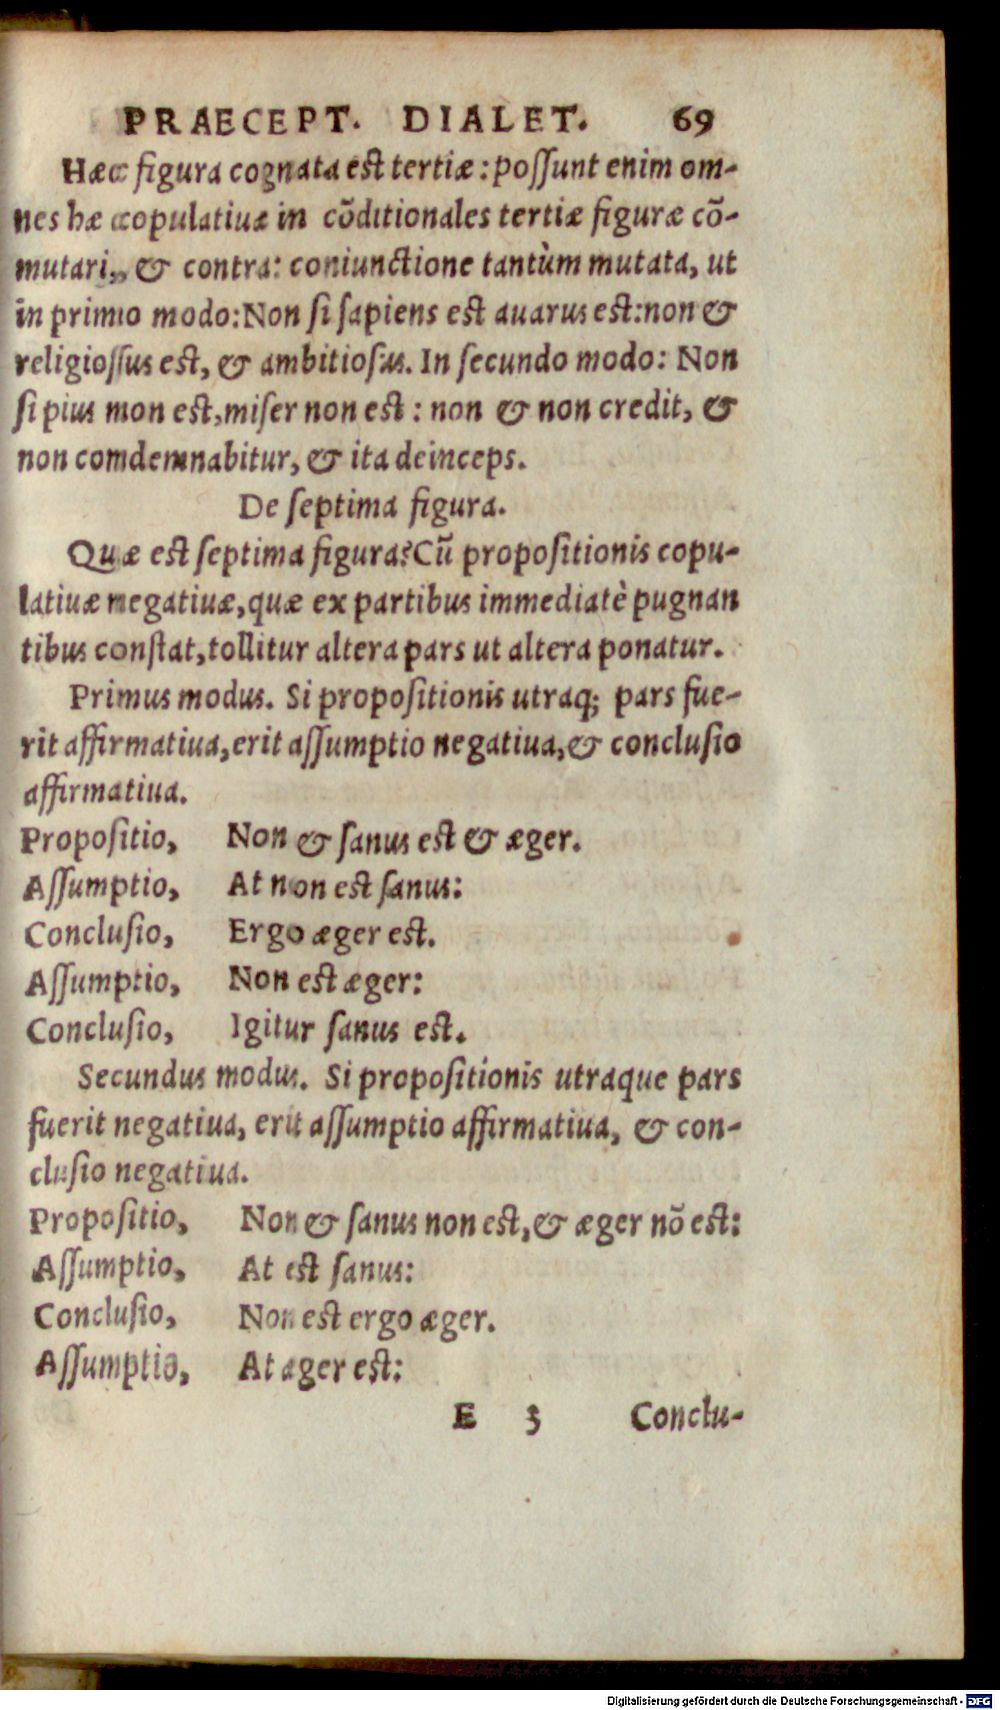 PRAECEPT. DIALET. 69
Hæc figura cognata est tertiæ: possunt enim om-
nes hæ copulatiuæ in cõditionales tertiæ figuræ cõ-
mutari, & contra: coniunctione tantùm mutata, ut
in primo modo: Non si sapiens est auarus est: non &
religiossus est, & ambitiosus. In secundo modo: Non
si pius non est, miser non est: non & non credit, &
non comdemnabitur, & ita deinceps.
De septima figura.
Quæ est septima figura? Cũ propositionis copu-
latiuæ negatiuæ, quæ ex partibus immediatè pugnan
tibus constat, tollitur altera pars ut altera ponatur.
Primus modus. Si propositionis utraq; pars fue-
rit affirmatiua, erit assumptio negatiua, & conclusio
affirmatiua.
Propositio, Non & sanus est & æger.
Assumptio, At non est sanus:
Conclusio, Ergo æger est.
Assumptio, Non est æger:
Conclusio, Igitur sanus est.
Secundus modus. Si propositionis utraque pars
fuerit negatiua, erit assumptio affirmatiua, & con-
clusio negatiua.
Propositio, Non & sanus non est, & æger nõ est:
Assumptio, At est sanus:
Conclusio, Non est ergo æger.
Assumptio, At æger est:
E 3 Conclu-
Digitalisierung gefördert durch die Deutsche Forschungsgemeinschaft - DFG